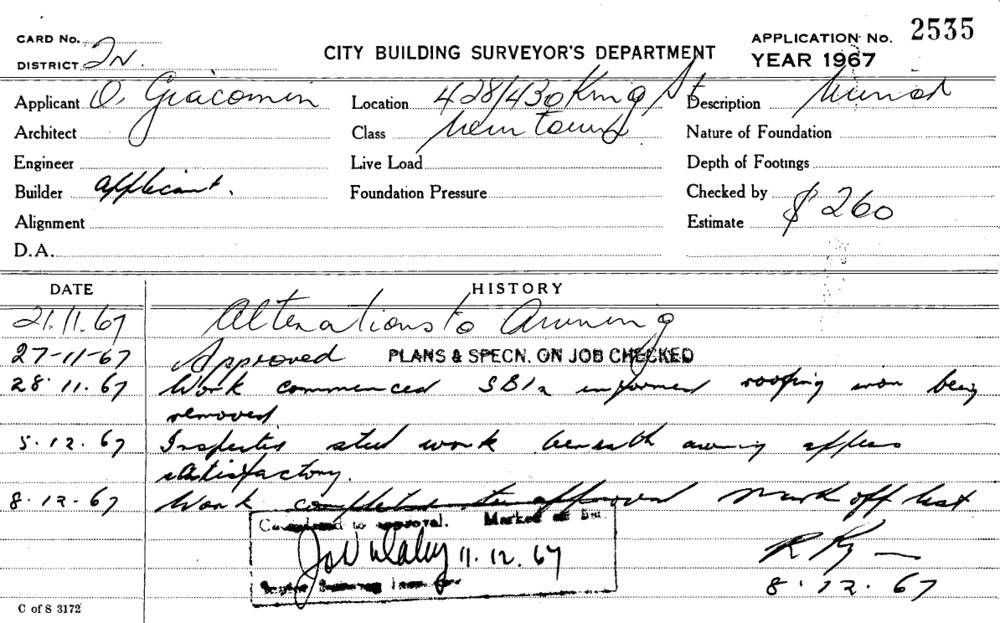 CARD No. 2N.
APPLICATION No. 2535
DISTRICT
CITY BUILDING SURVEYOR'S DEPARTMENT
YEAR 1967
Applicant O. Giacomin
Location 428/430 King St
Description Minor
Architect
Class Newtown
Nature of Foundation
Engineer
Live Load
Depth of Footings
Builder applicant.
Foundation Pressure
Checked by
Alignment
Estimate $260
D.A.
DATE HISTORY
21.11.67 Alterations to Awning
27-11-67 Approved PLANS & SPECN. ON JOB CHECKED
28.11.67 Work commenced informed roofing iron being
removed
5.12.67 steel work beneath awning appears
satisfactory.
8.12.67 Work completed to approval Mark off list
Completed to approval. Marked off list.
11.12.67
8.12.67
C of S 3172